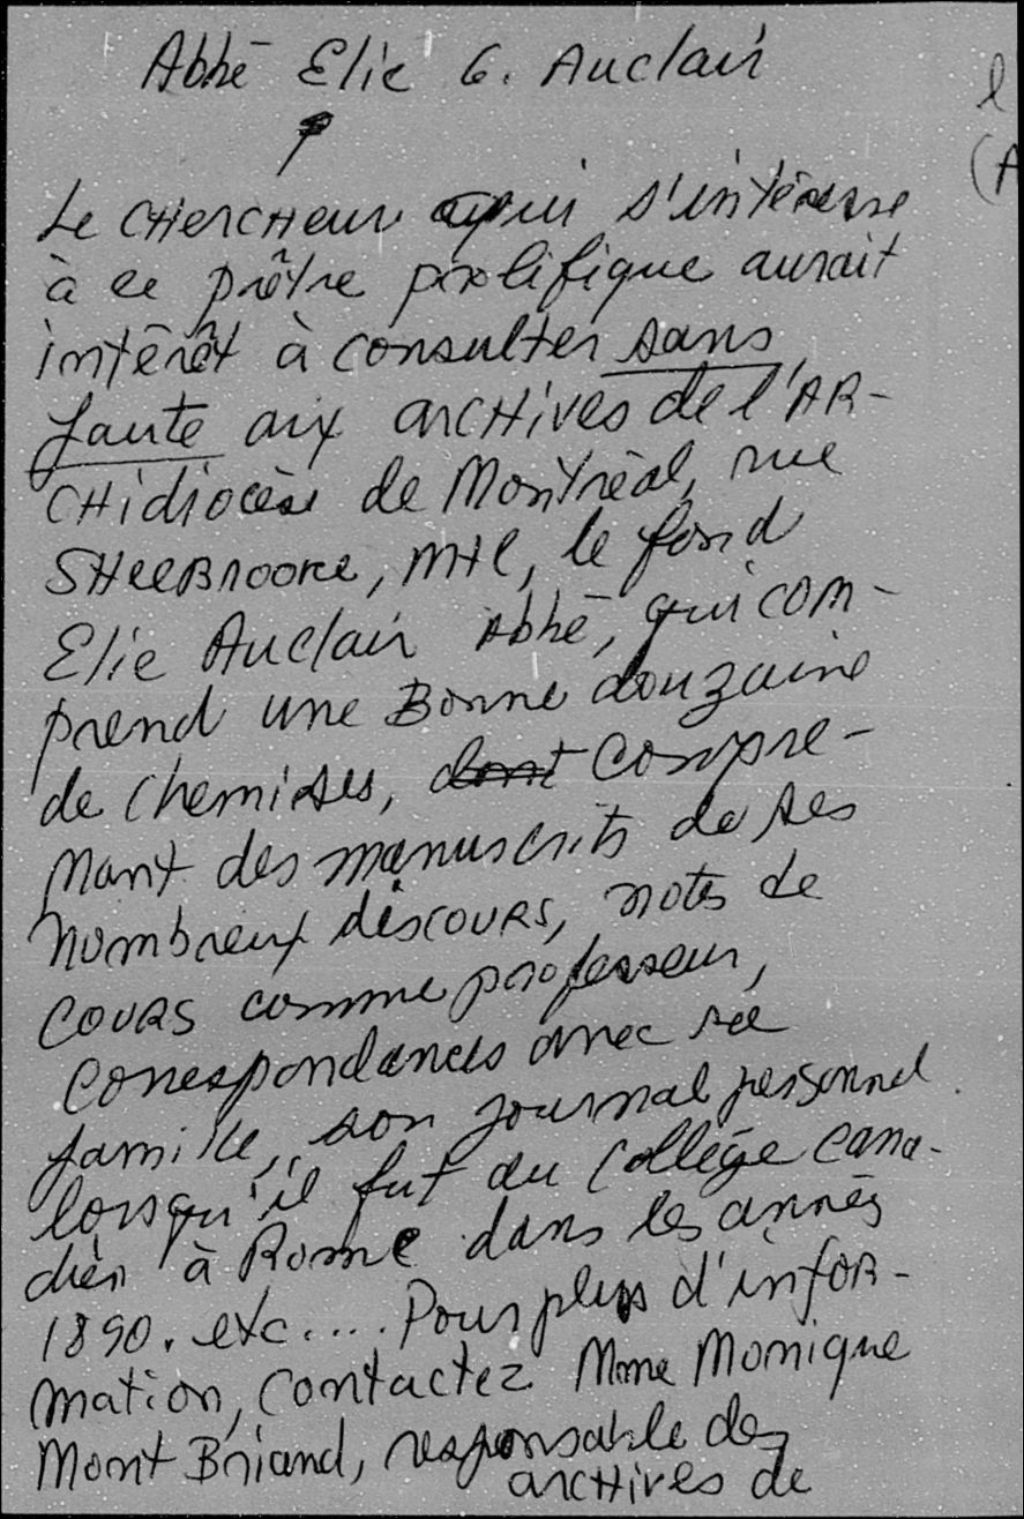 Abbé Elie G. Auclair
Le CHercHeur qui s'intéresse
à ce prêtre prolifique aurait
intérêt à consulter sans
faute aux arcHives de l'AR-
CHidiocèse de Montréal, rue
SHerBrooke, Mtl, le fond
Elie Auclair Abbé, qui com-
prend une Bonne douzaine
de chemises, dont compre-
nant des manuscrits de ses
nombreux discours, notes de
cours comme professeur,
correspondances avec sa
famille, son journal personnel
lorsqu'il fut au Collège Cana-
dien à Rome dans les années
1890. etc.... Pour plus d'infor-
mation, Contactez Mme Monique
Mont Briand, responsable des
arcHives de
l
(A